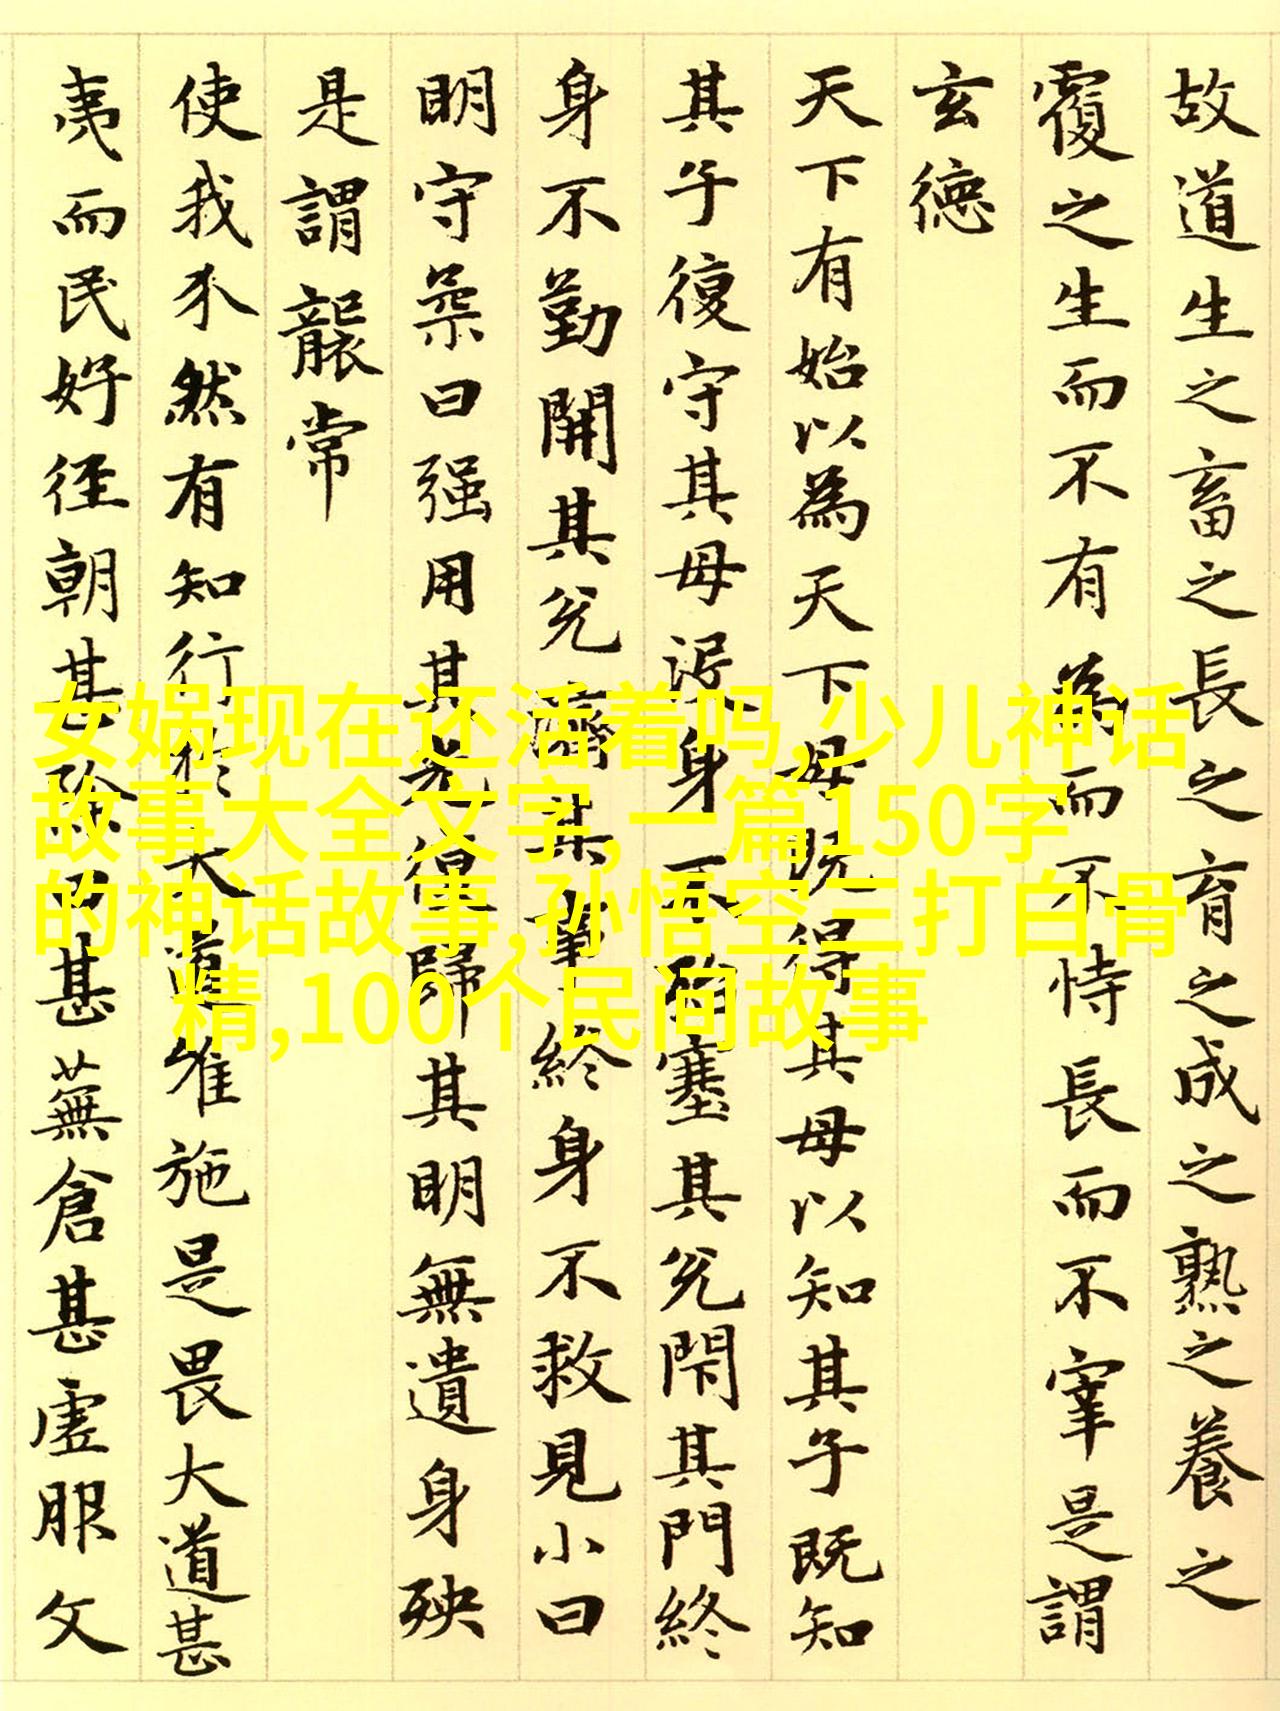 故道生之畜之長之育之成之熟之養之
覆之生而不有為而不恃長而不宰是謂
玄德
天下有始以為天下母既得其母以知其子既知
其子復守其母没身不殆塞其兌閇其門終
身不勤開其兌濟其事終身不救見小曰
明守柔曰强用其光復歸其明無遺身殃
是謂襲常
使我介然有知行於大道唯施是畏大道甚
夷而民好徑朝甚除田甚蕪倉甚虛服文
女娲现在还活着吗,少儿神话
故事大全文字,一篇150字
的神话故事,孙悟空三打白骨
精,100个民间故事